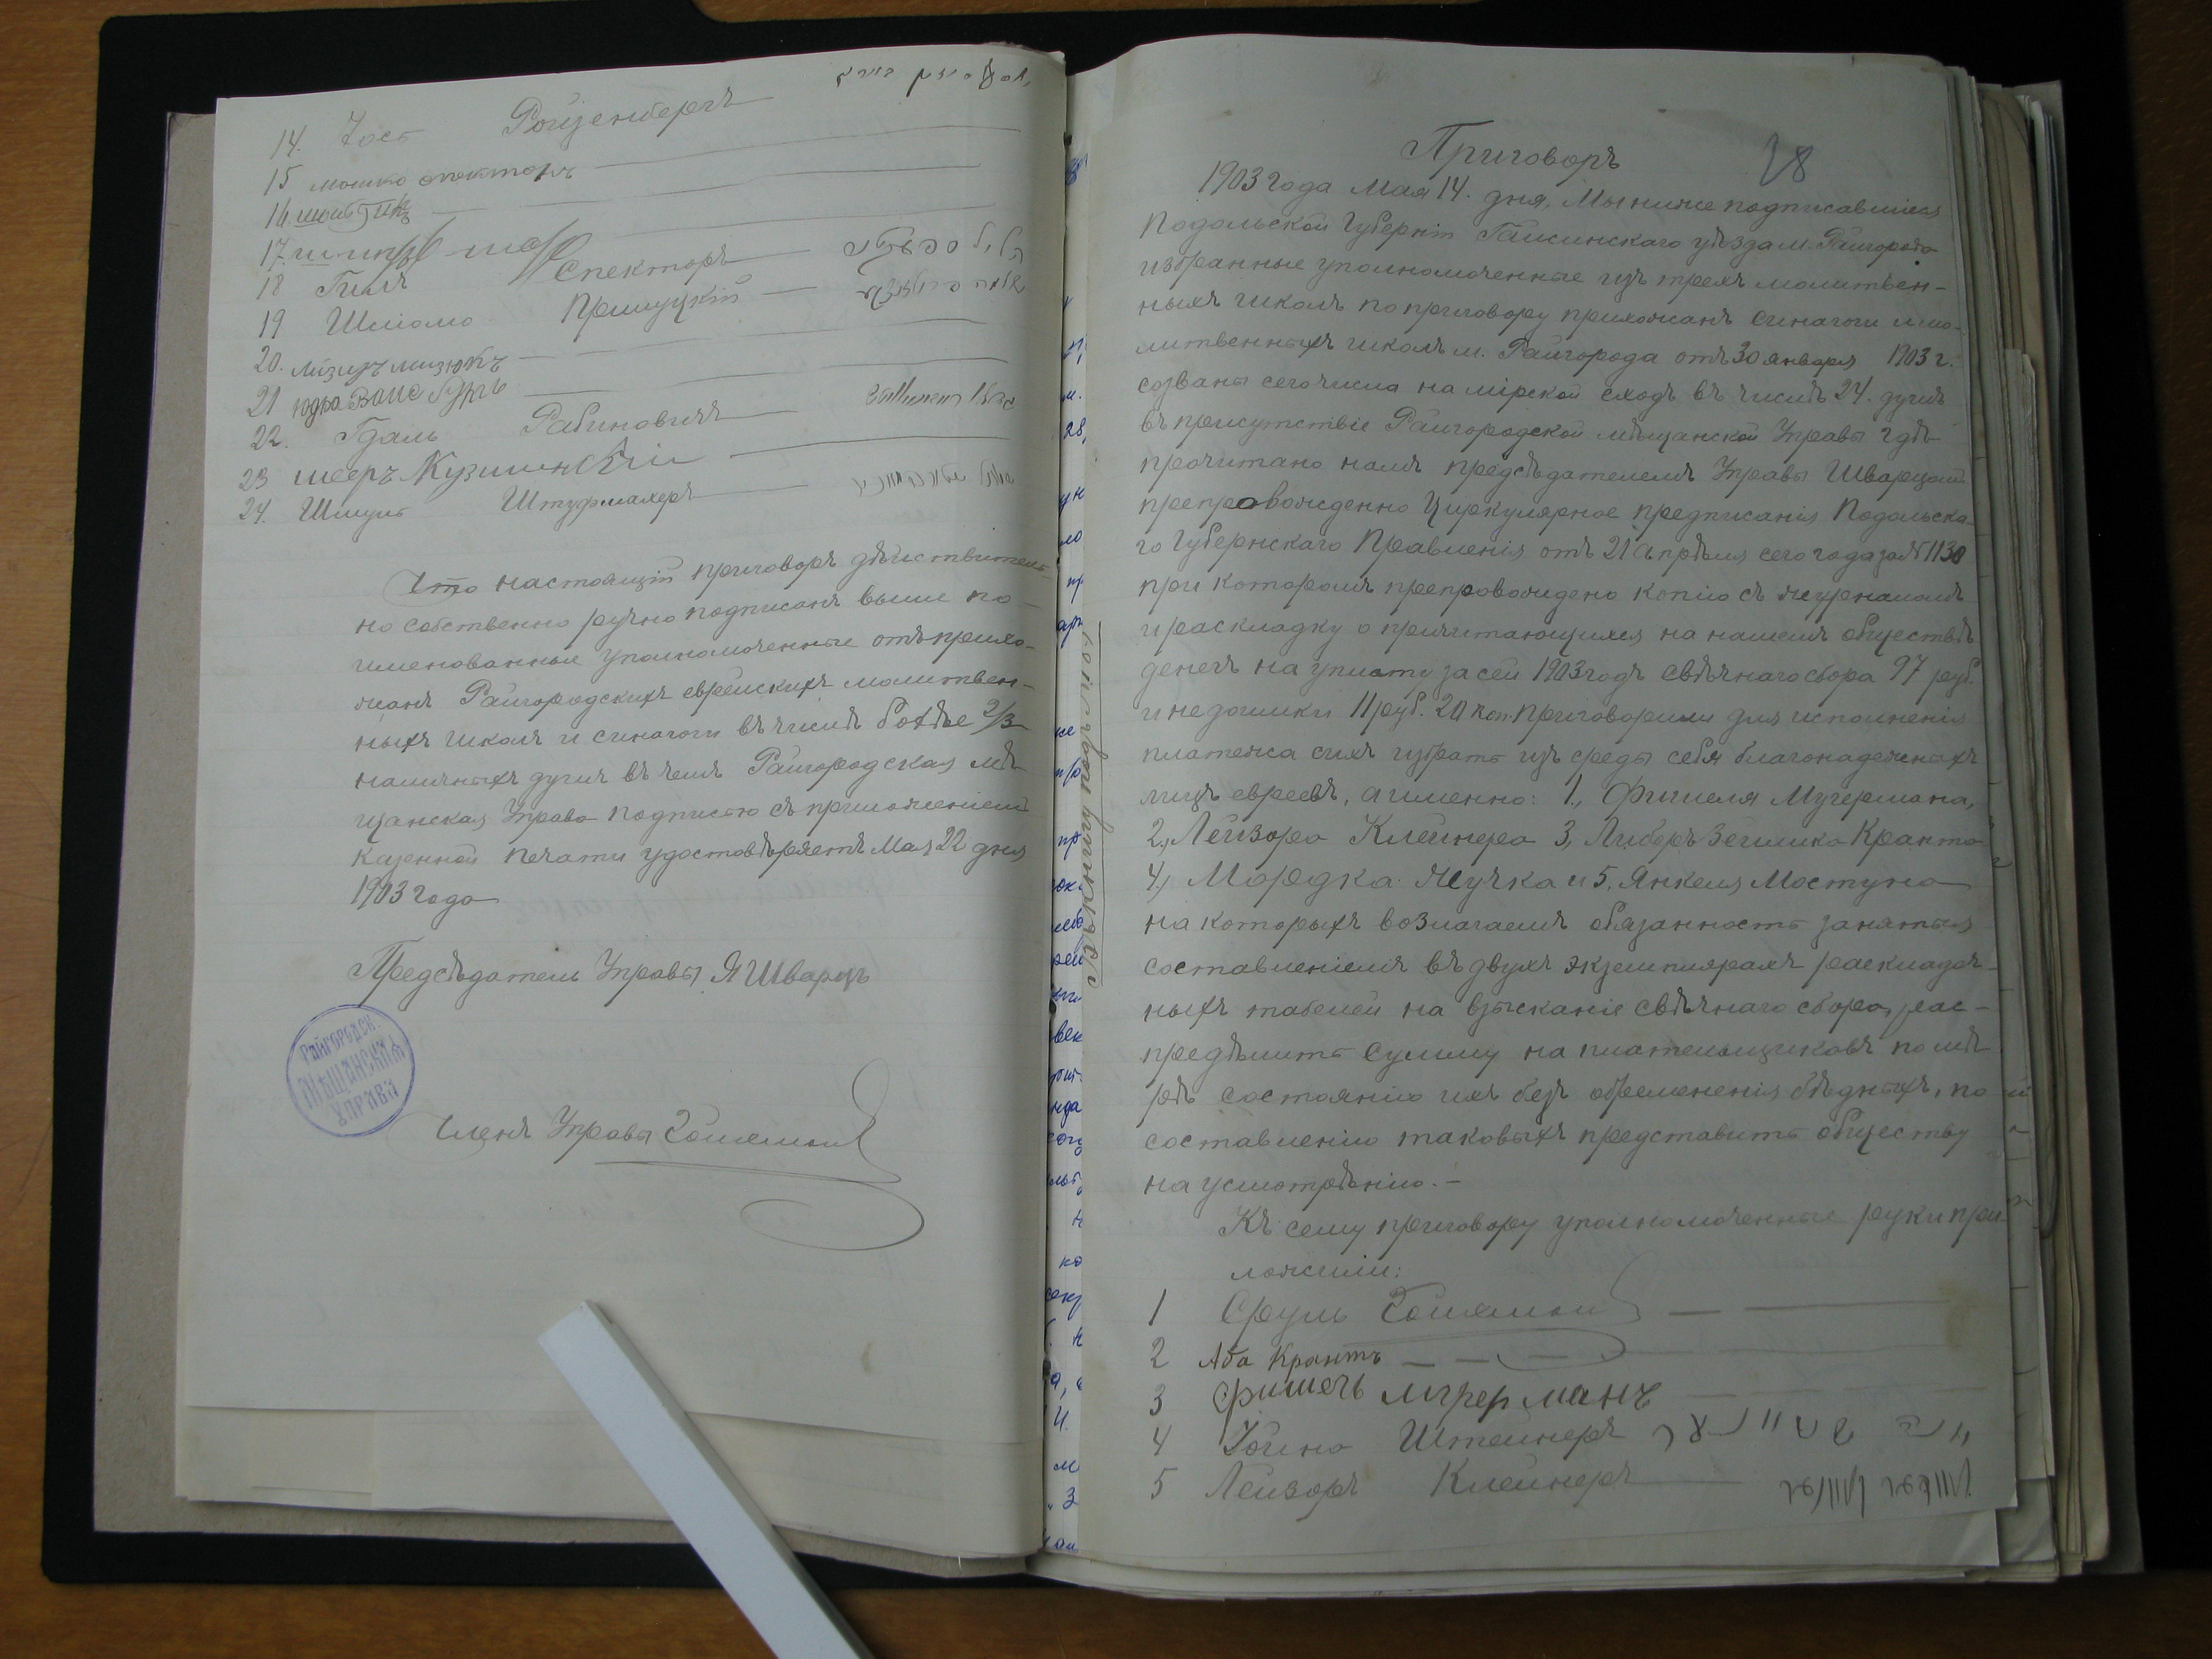 14. Іось Ройзенбергъ
15 мошко спекторъ
16.
17.
18 Гиля Спекторъ
19 Шліома Прилуцкій
20. лизиръ мизюкъ
21 юдко Вансбургъ
22. Гдаль Рабиновичъ
23 мееръ Кузминскій
24. Шмуль Штуфмахеръ
Что настоящій приговоръ дѣйствитель-
но собственно ручно подписанъ выше по-
именованные уполномоченные отъ прихо-
жанъ Райгородскихъ еврейскихъ молитвен-
ныхъ школъ и синагоги въ числѣ болѣе 2/3
наличныхъ душъ въ чемъ Райгородская мѣ-
щанская Управа подписью съ приложеніемъ
казенной печати удостовѣряетъ Мая 22 дня
1903 года
Предсѣдатель Управы Я Шварцъ
Райгородск.
Мѣщанская
Управа
Членъ Управы
съ копіи
28
Приговоръ
1903 года Мая 14. дня, Мы ниже подписавшіеся
Подольской Губерніи Гайсинскаго уѣзда м. Райгорода
избранные уполномоченные изъ трехъ молитвен-
ныхъ школъ по приговору прихожанъ синагоги и мо-
литвенныхъ школъ м. Райгорода отъ 30 января 1903 г.
созваны сего числа на мірской сходъ въ числѣ 24. душъ
въ присутствіе Райгородской мѣщанской Управы гдѣ
прочитано намъ предсѣдателемъ Управы Шварцомъ
препровожденно Циркулярное предписанія Подольска-
го Губернскаго Правленія отъ 21 апрѣля сего года за № 1130
при которомъ препровождено копію съ журналомъ
и раскладку о причитающихся на нашемъ обществѣ
денегъ на уплату за сей 1903 годъ свѣчнаго сбора 97 руб.
и недоимки 11 руб. 20 коп. приговорили для исполненія
платежа сихъ избрать изъ среды себя благонадежныхъ
лицъ евреевъ, а именно: 1., Фишеля Мучермана,
2., Лейзора Клейнера 3, Либоръ Зейлика Кранта
4., Мордка Жучка и 5, Янкеля Мостуна
на которыхъ возлагаемъ обязанность заняться
составленіемъ въ двухъ экземплярахъ раскладоч-
ныхъ табелей на взысканіе свѣчнаго сбора, рас-
предѣлить сумму на плательщиковъ по мѣ-
рѣ состоянію ихъ безъ обремененія бѣдныхъ, по
составленію таковыхъ представить обществу
на усмотрѣнію. -
Къ сему приговору уполномоченные руки при-
ложили:
1 Сруль
2 Аба Крантъ
3 фишель мучерманъ
4 Іойно Штейнеръ
5 Лейзоръ Клейнеръ